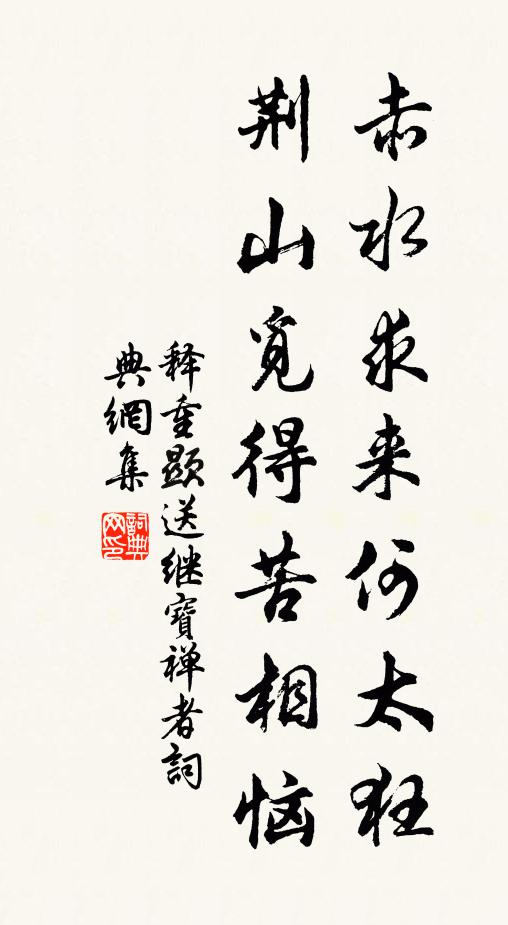 赤水求来何太狂
荆山觅得苦相恼
释重显送继寶禅者詞
典網集
詞典网印